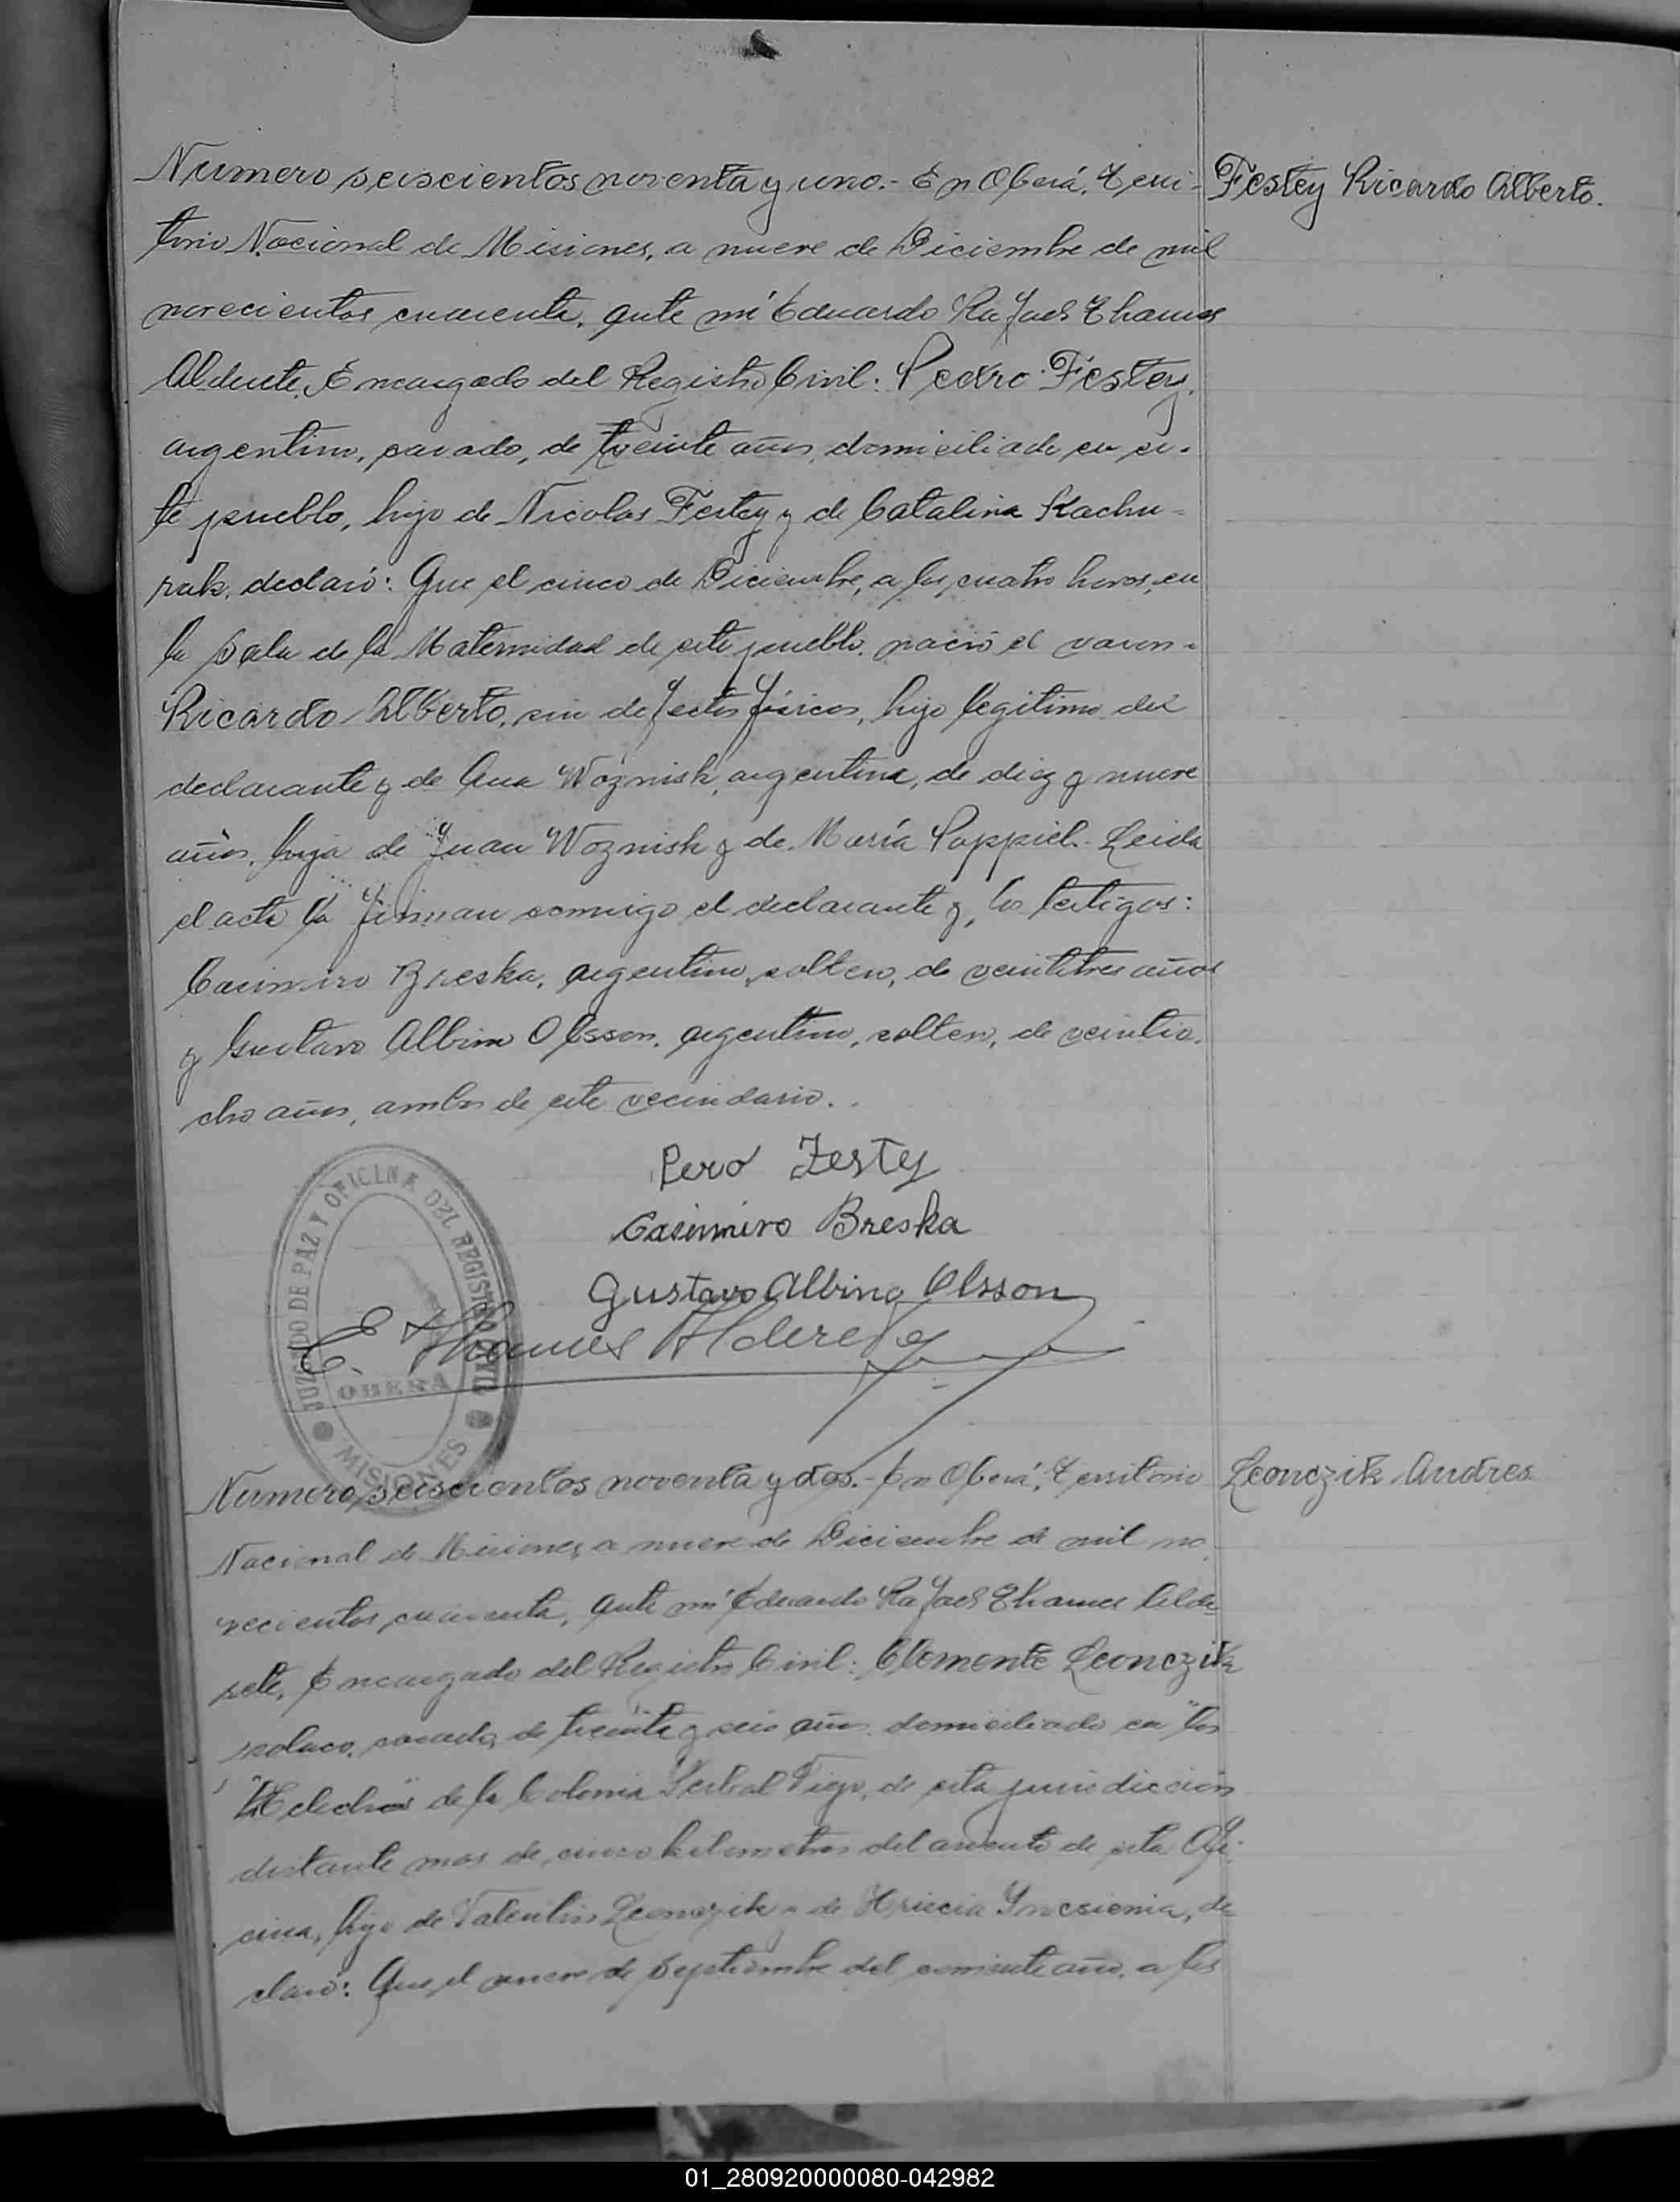 Numero seiscientos noventa y uno.- En Oberá, Terri-
Festey Ricardo Alberto.
torio Nacional de Misiones, a nueve de Diciembre de mil
novecientos cuarenta, ante mí Eduardo Rafael Thames
Alderete, Encargado del Registro Civil: Pedro Festey,
argentino, casado, de treinta años, domiciliado en es-
te pueblo, hijo de Nicolas Festey y de Catalina Kachu-
rak, declaró: Que el cinco de Diciembre, a las cuatro horas, en
la Sala de la Maternidad de este pueblo, nació el varon-
Ricardo Alberto, sin defectos físicos, hijo legitimo del
declarante y de Ana Woznisk, argentina, de diez y nueve
años, hija de Juan Woznisk y de María Poppiel.- Leida
el acta la firman conmigo el declarante y los testigos:
Casimiro Breska, argentino, soltero, de veintitres años
y Gustavo Albino Olsson, argentino, soltero, de veintio-
cho años, ambos de este vecindario.-
Pero Festey
Casimiro Breska
Gustavo Albino Olsson
E. Thames Alderete
JUZGADO DE PAZ Y OFICINA DEL REGISTRO CIVIL
OBERA
MISIONES
Numero seiscientos noventa y dos.- En Oberá, Territorio
Leonczik Andres
Nacional de Misiones, a nueve de Diciembre de mil no
vecientos cuarenta, ante mí Eduardo Rafael Thames Alde
rete, Encargado del Registro Civil: Clemente Leonczik
polaco, casado, de treinta y seis años, domiciliado en "Los
Helechos" de la Colonia Yerbal Viejo, de esta jurisdicción
distante mas de cinco kilometros del asiento de esta Ofi-
cina, hijo de Valentin Leonczik y de, de
claró: Que el nueve de Septiembre del corriente año, a las
01_280920000080-042982